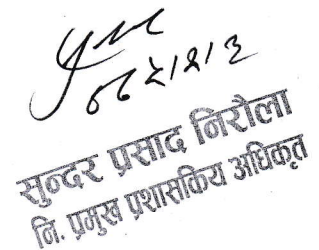 सुन्दर प्रसाद निरौला
नि. प्रमुख प्रशासकिय अधिकृत